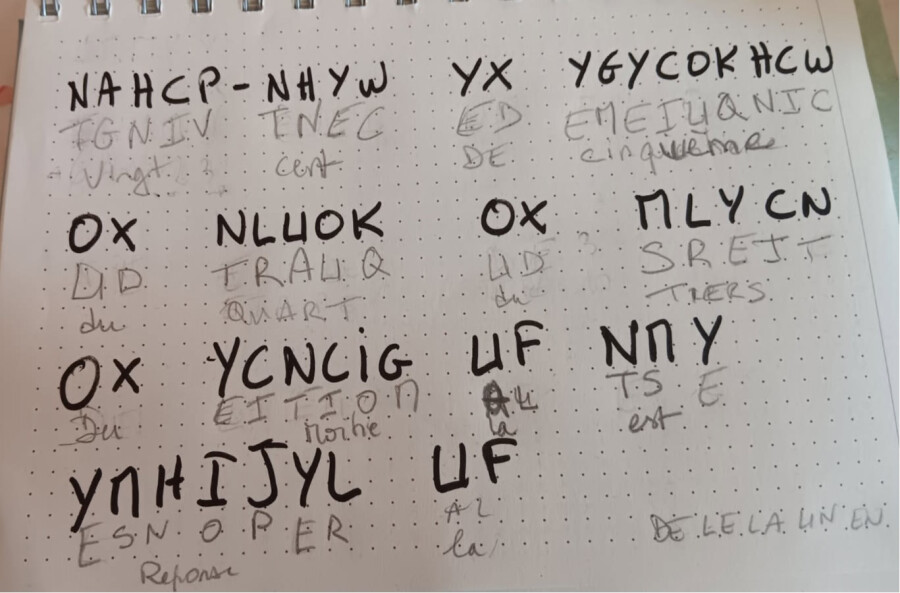 NAHCP-NHYW YX YGYCOKHCW
TGNIV TNEC ED EMEIUQNIC
Vingt cent DE cinquième
OX NLUOK OX ΠLYCN
UD TRAUQ UD SREIT
du QUART du TIERS
OX YCNCiG UF NΠY
EITIOM TS E
Du Moitie la est
YΠHIJYL UF
ESNOPER AL DE.LE.LA.UN.EN.
Reponse la